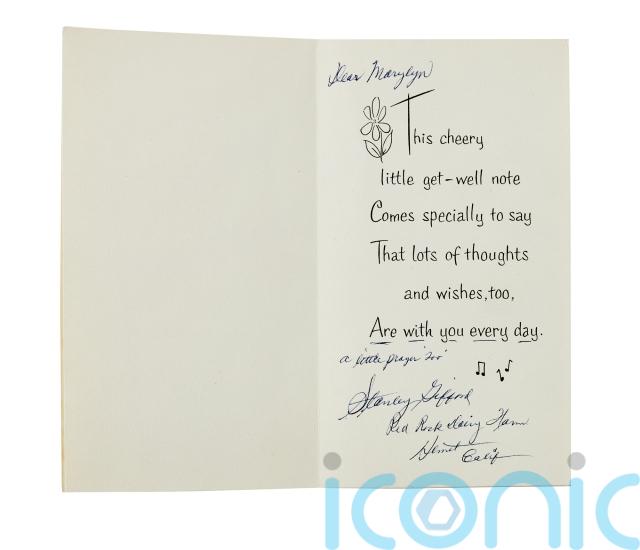 Dear Marylyn
This cheery
little get-well note
Comes specially to say
That lots of thoughts
and wishes, too,
Are with you every day.
a little prayer "too"
Stanley Gifford
Red Rock Dairy Farm
Hemet
Calif
iconic